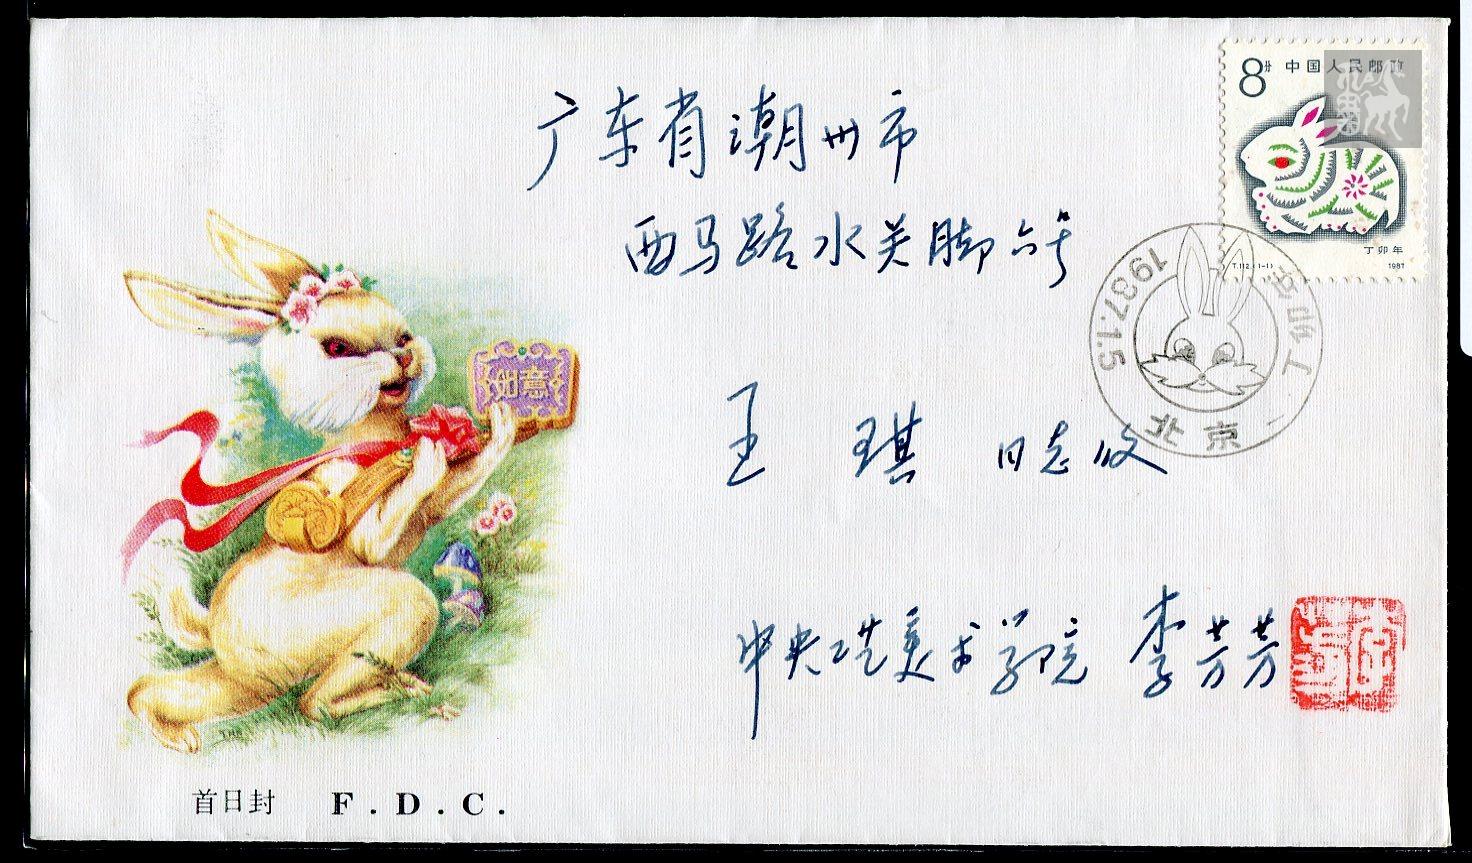 8分 中国人民邮政
丁卯年
T.112.(1-1) 1987
广东省潮州市
西马路水关脚六号
1987.1.5
丁卯年
北京
如意
王琪同志收
中央工艺美术学院 李芳芳
THA
首日封 F.D.C.